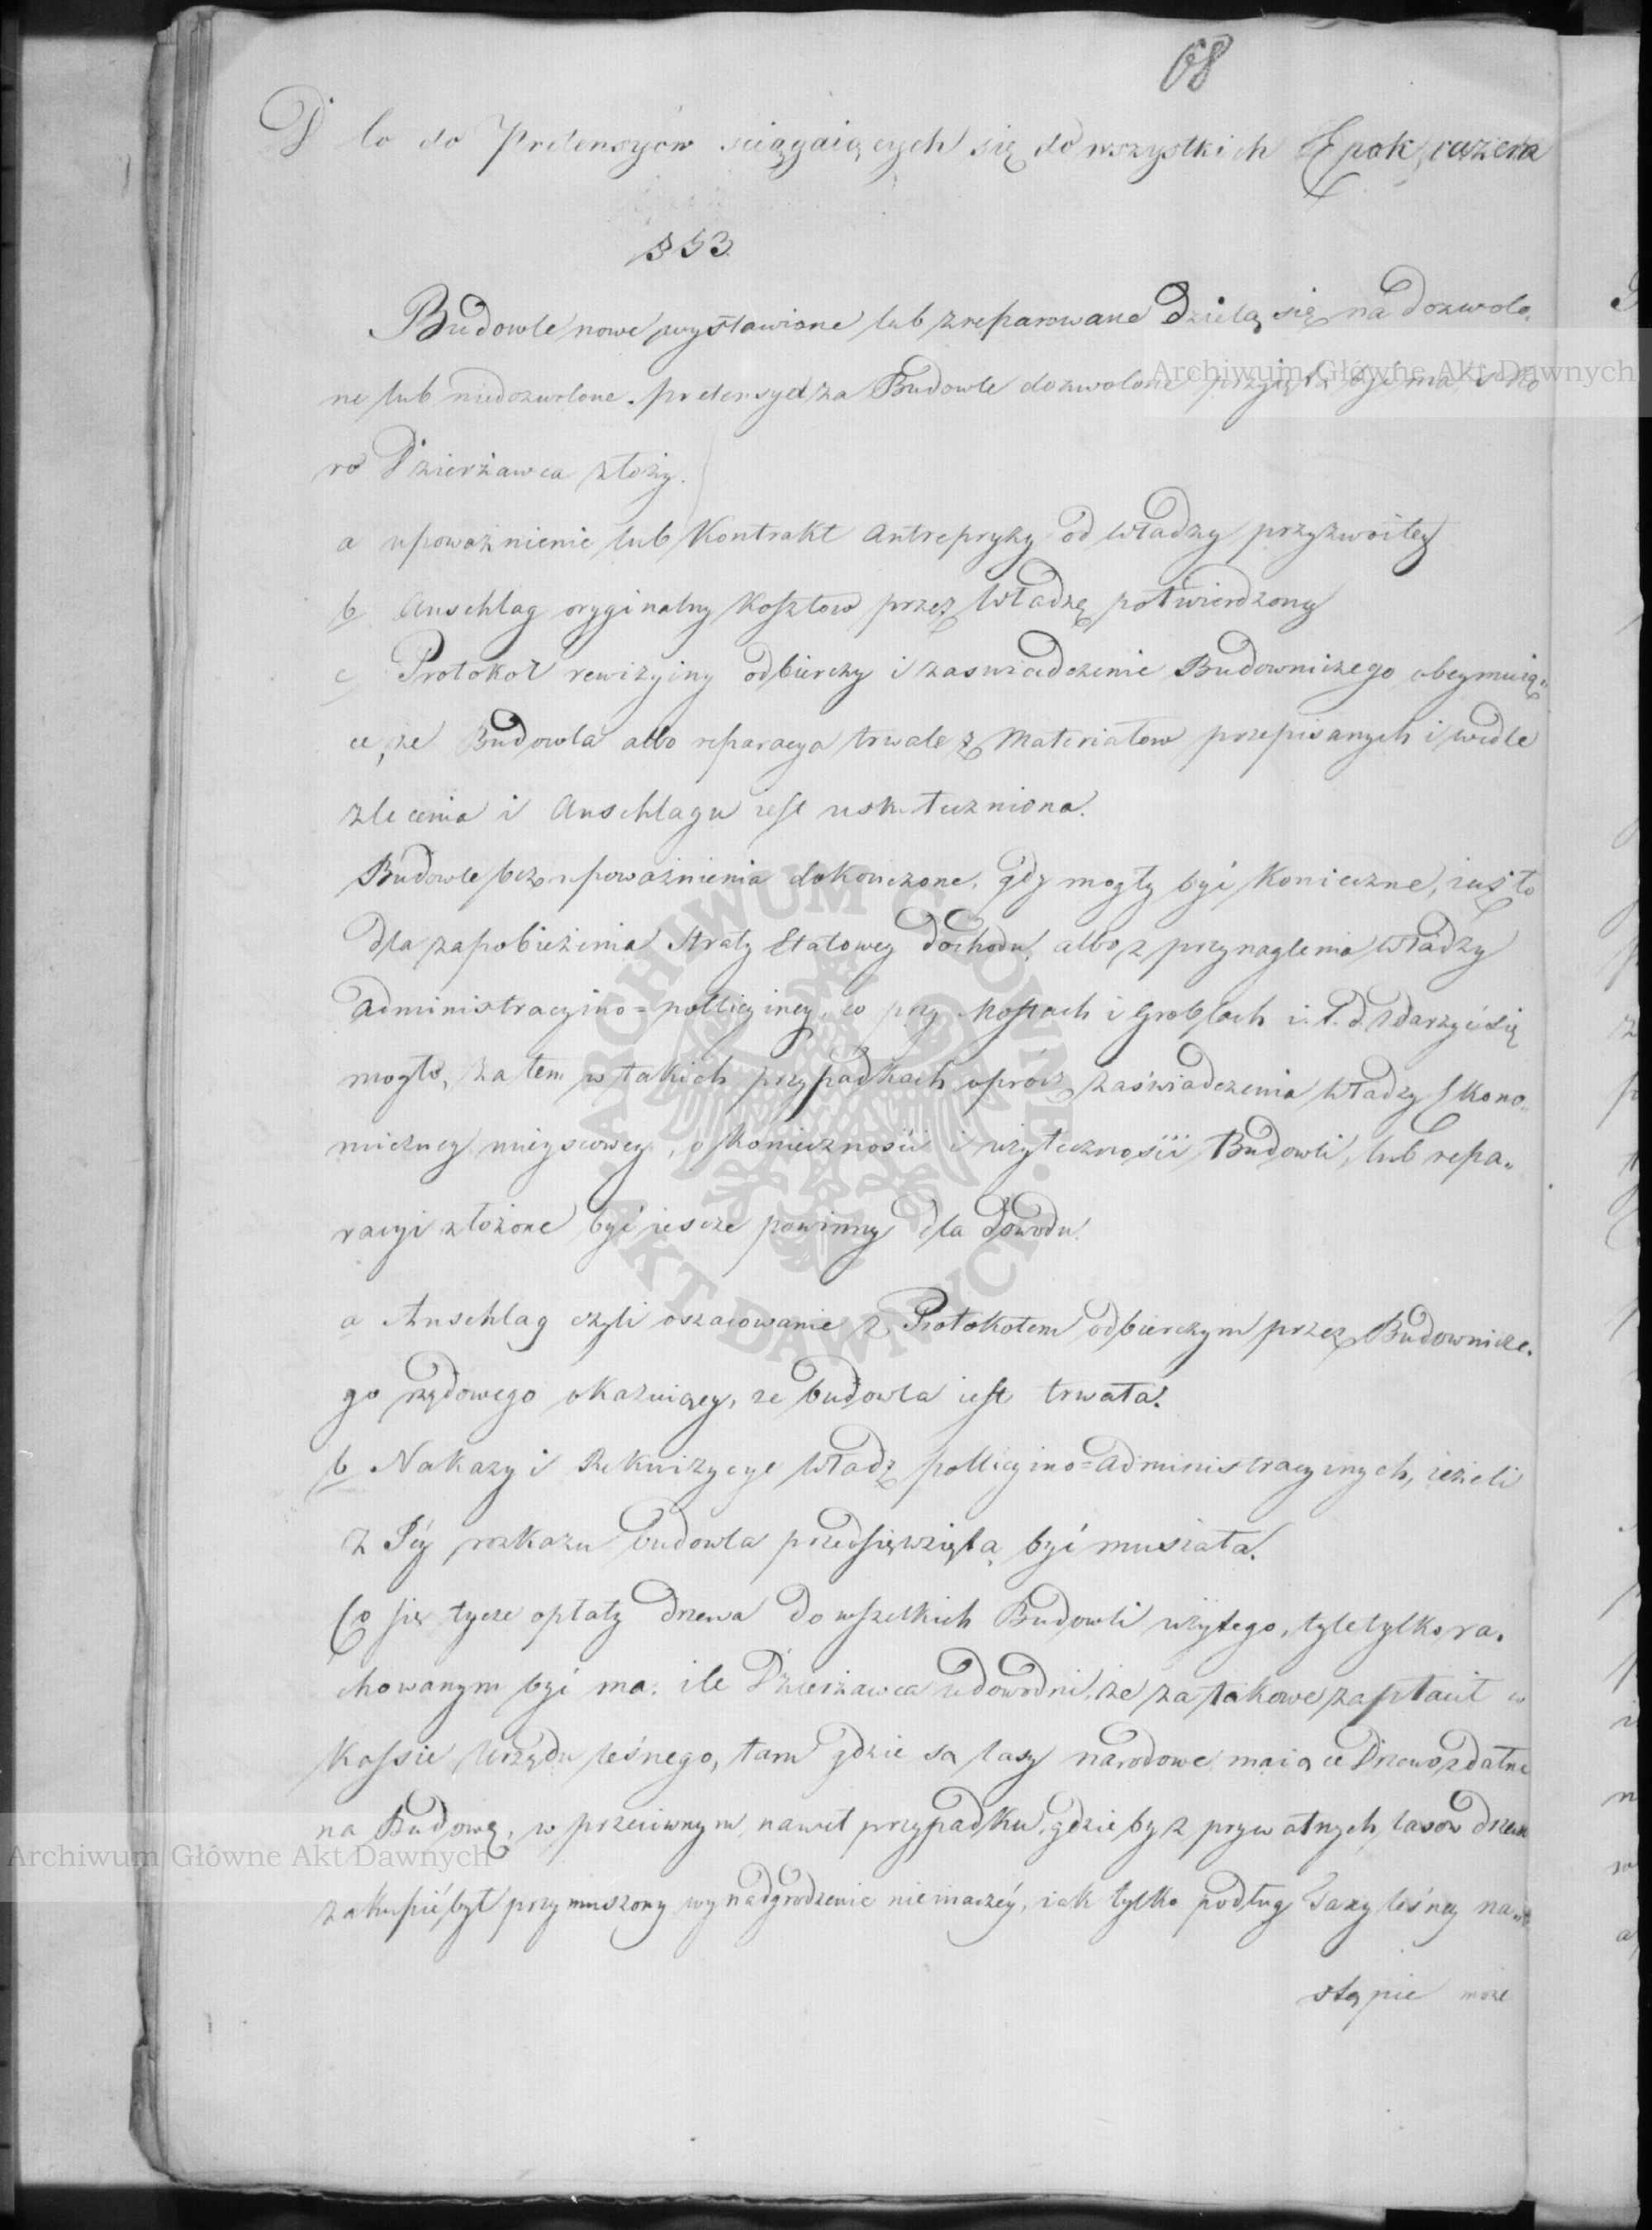 68
D co do Pretensyów sciągaiących się do wszystkich Epok razem
§ 53.
Budowle nowe wystawione lub zreparowane dzielą się na dozwolo-
ne lub niedozwolone. pretensya za Budowle dozwolone przyięta być ma sko
ro Dzierżawca złoży.
a upoważnienie lub Kontrakt Antrepryzy od Władzy przyzwoitey
b Anschlag oryginalny Kosztow przez Władzę potwierdzony
c Protokoł rewizyiny odbierczy i zaswiadczenie Budowniczego obeymuią-
ce, ze Budowla albo reparacya trwale z Materiałow przepisanych i wedle
zlecenia i Anschlagu iest uskuteczniona.
Budowle bez upoważnienia dokończone, gdy mogły być Konieczne, iuż to
dla zapobieżenia Straty Etatowey dochodu, albo z przynaglenia Władzy
administracyino=policyiney, co przy Mostach i Groblach i. t. d. zdarzyć się
mogło, zatem w takich przypadkach oprócz zaświadczenia Władzy Ekono-
miczney mieyscowey, o Konieczności i użyteczności Budowli, lub repa-
racyi złożone być iescze powinny dla dowodu.
a Anschlag czyli oszacowanie z Protokołem odbierczym przez Budownicze-
go rządowego okazuiący, ze budowla iest trwała.
b Nakazy i Rekwizycye Władz policyino=administracyinych, ieżeli
z Jéy rozkazu budowla przedsięwzięta być musiała.
Co się tycze opłaty drzewa do wszelkich Budowli użytego, tyle tylko ra-
chowanym być ma. ile Dzierżawca udowodni, że za takowe zapłacił w
Kassie Urzędu leśnego, tam gdzie są lasy narodowe maiące Drzewo zdatne
na Budowę, w przeciwnym nawet przypadku, gdzie by z prywatnych lasów drzewo
zakupić był przymuszony wynadgrodzenie nieinaczéy, iak tylko podług Taxy leśney na-
stąpić może
Archiwum Główne Akt Dawnych
Archiwum Główne Akt Dawnych
ARCHIWUM GŁÓWNE AKT DAWNYCH